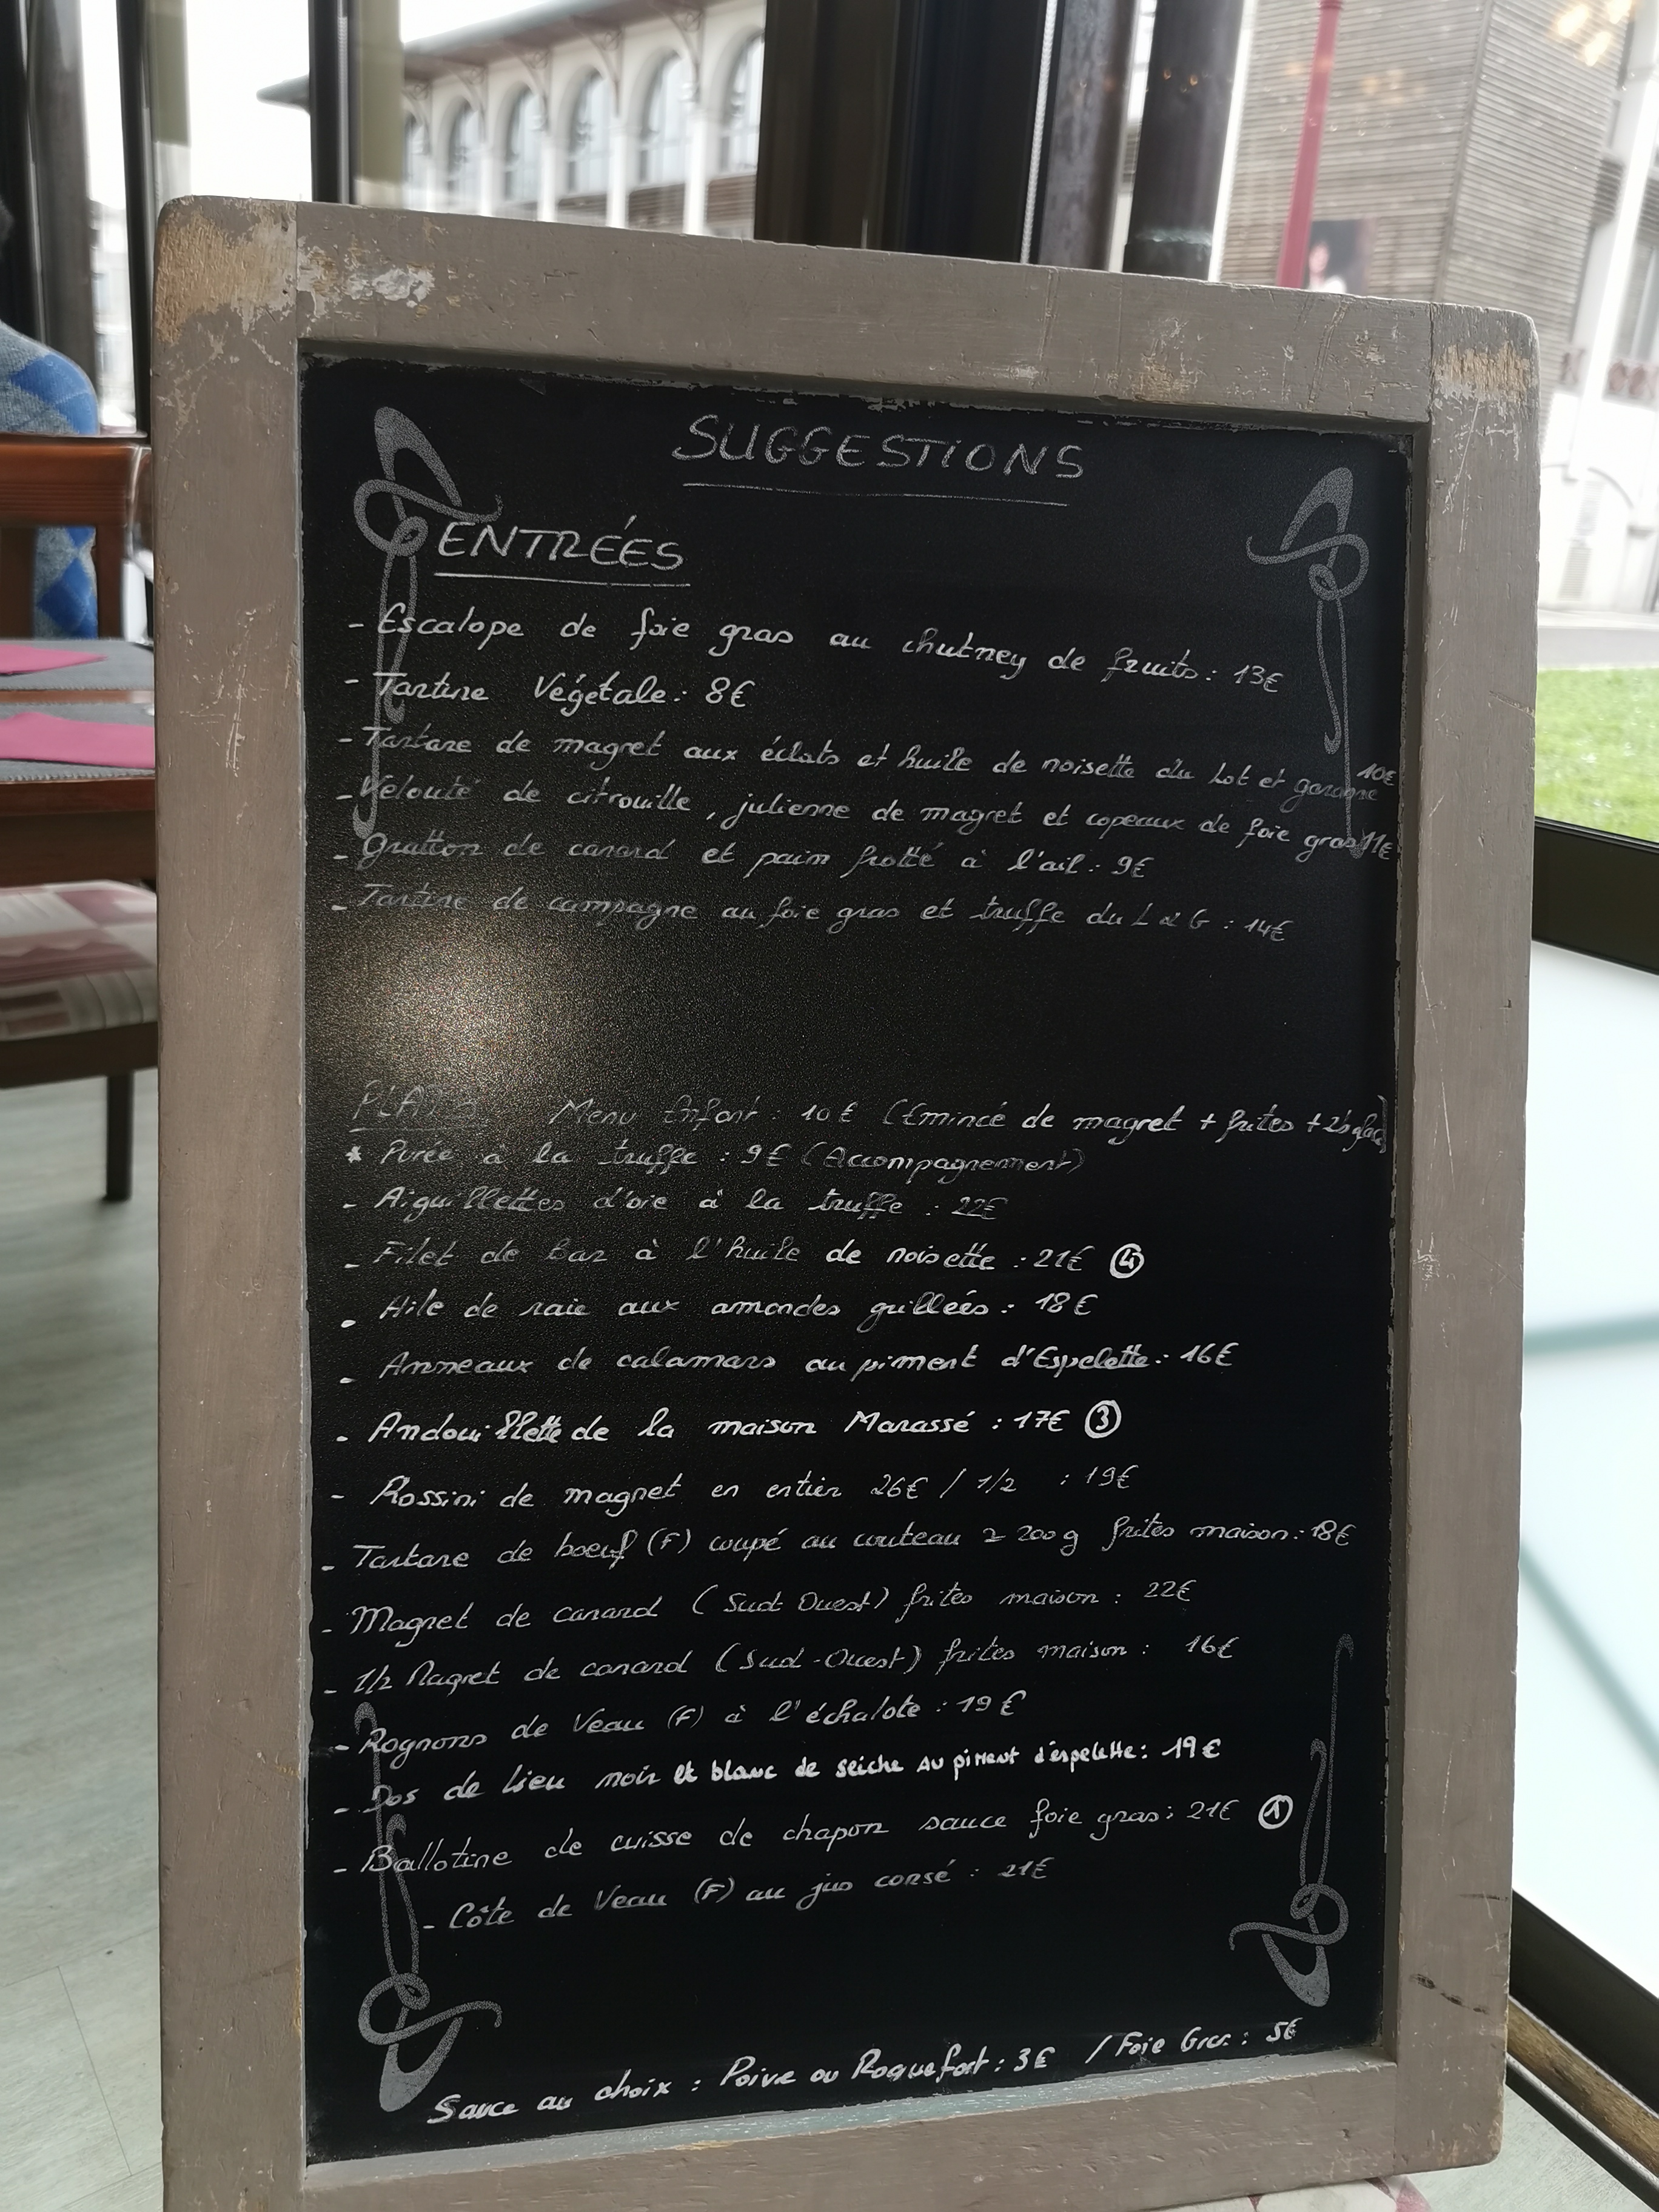 SUGGESTIONS
ENTRÉES
- Escalope de foie gras au chutney de fruits : 13€
- Tartine Végétale : 8€
- Tartare de magret aux éclats et huile de noisette du Lot et garonne 10€
- Velouté de citrouille, julienne de magret et copeaux de foie gras 11€
- Gratton de canard et pain frotté à l'ail : 9€
- Tartine de campagne au foie gras et truffe du L & G : 14€
PLATS Menu Enfant : 10€ (Emincé de magret + frites +
* Purée à la truffe : 9€ (Accompagnement)
- Aiguillettes d'oie à la truffe : 22€
- Filet de bar à l'huile de noisette : 21€ ④
- Aile de raie aux amandes grillées : 18€
- Anneaux de calamars au piment d'Espelette : 16€
- Andouillette de la maison Marassé : 17€ ③
- Rossini de magret en entier 26€ / 1/2 : 19€
- Tartare de boeuf (F) coupé au couteau 200g frites maison : 18€
- Magret de canard (Sud Ouest) frites maison : 22€
- 1/2 Magret de canard (Sud-Ouest) frites maison : 16€
- Rognons de Veau (F) à l'échalote : 19€
- Dos de lieu noir et blanc de seiche au piment d'espelette : 19€
- Ballotine de cuisse de chapon sauce foie gras : 21€ ①
- Côte de Veau (F) au jus corsé : 21€
Sauce au choix : Poivre ou Roquefort : 3€ / Foie Gras : 5€